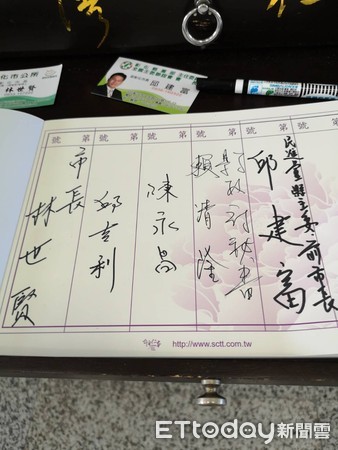 化市公所
林世賢
邱建富
第 號
第 號
第 號
第 號
第 號
第 號
民進黨縣主委前市長
邱建富
賴清隆
陳永昌
邱吉利
市長
林世賢
http://www.sctt.com.tw
ETtoday新聞雲